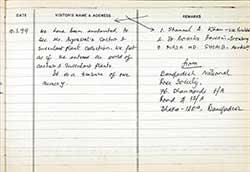 DATE
VISITOR'S NAME & ADDRESS
REMARKS
10.2.99
We have been enchanted to
see Mr. Agrawal's Cactus &
Succulent Plant collection. We felt
as if we entered the world of
Cactus & Succulent Plants.
It is a treasure of one
nursery.
1. A Khan
2. Hussain - Secretary
3. MD.
from
Bangladesh National
Rose Society,
96. Dhanmondi R/A
Road # 13/A
Dhaka - 1209, Bangladesh